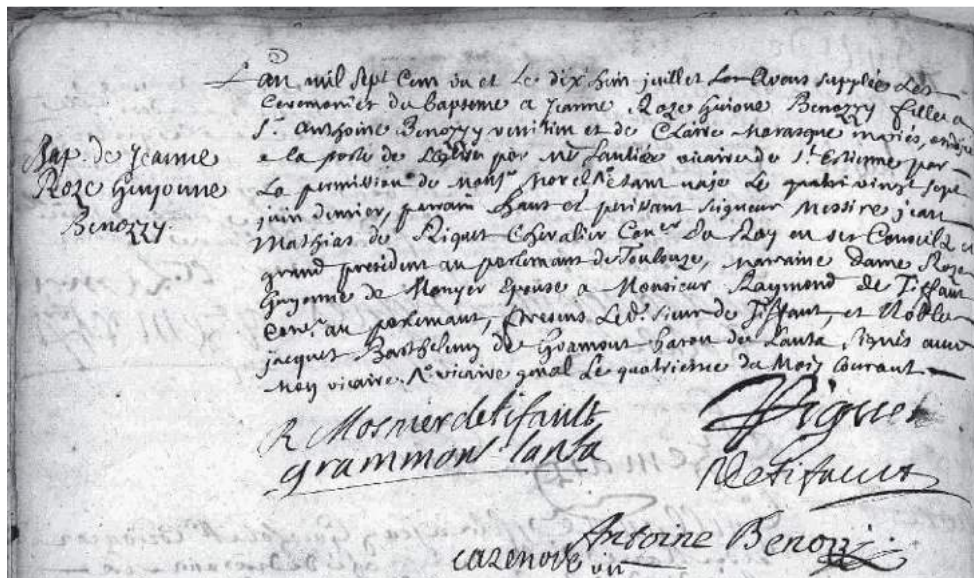 Bap. de Jeanne
Roze Guyonne
Benozzy.
L'an mil sept cens un et le dix huit juillet son avons supplée les
Ceremonies du bapteme a Jeanne Roze Guione Benozzy fille a
Sr. Anthoine Benozzy venitien et de Claire Marasque mariés,
a la porte de l'eglise par Mr vicaire de St. Estienne par
La permission de Monsr. Morel estant naje le quatrivingt sept
juin dernier, parrain haut et puissant seigneur Messire jean
Mathias de Riquet Chevalier Coner. Du Roy en ses Conseils et
grand president au parlemant de Toulouze, marraine dame Roze
Guyonne de Monyer Epouse a Monsieur Raymond de Tiffaut
Coner. au parlemant, presens Led. sieur de Tiffaut, et Noble
jacques Barthelemy de Gramont baron de Lanta, signés avec
moy vicaire. vicaire genal Le quatrieme du Mois Courant
R Mosnier de tifault
Riquet
grammont lanta
De tifaut
Antoine Benozzi
cazenove vic